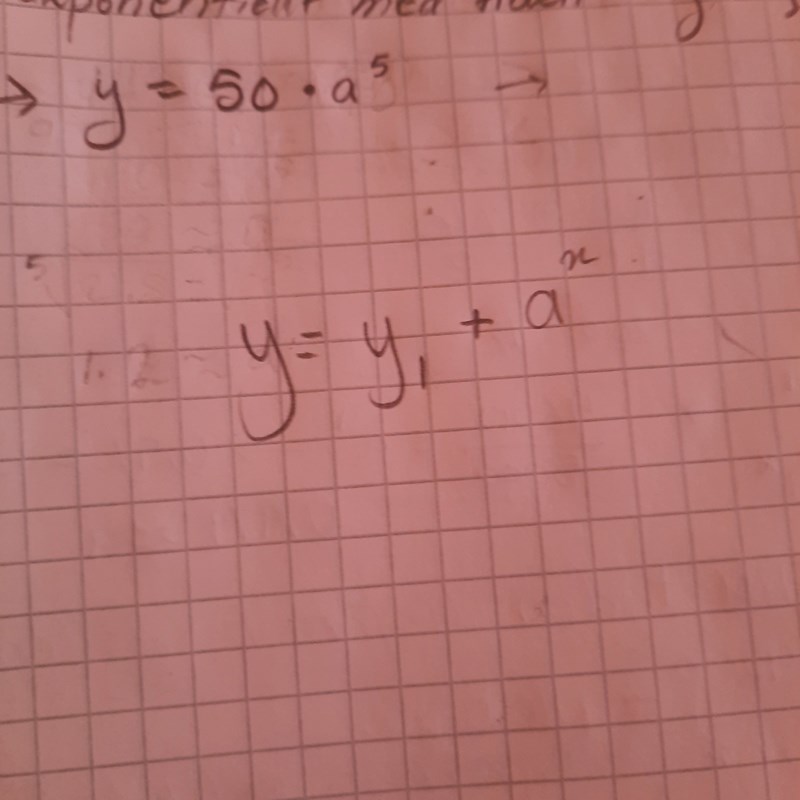 exponentiellt med
→ y = 50 · a⁵ →
y = y₁ + aˣ